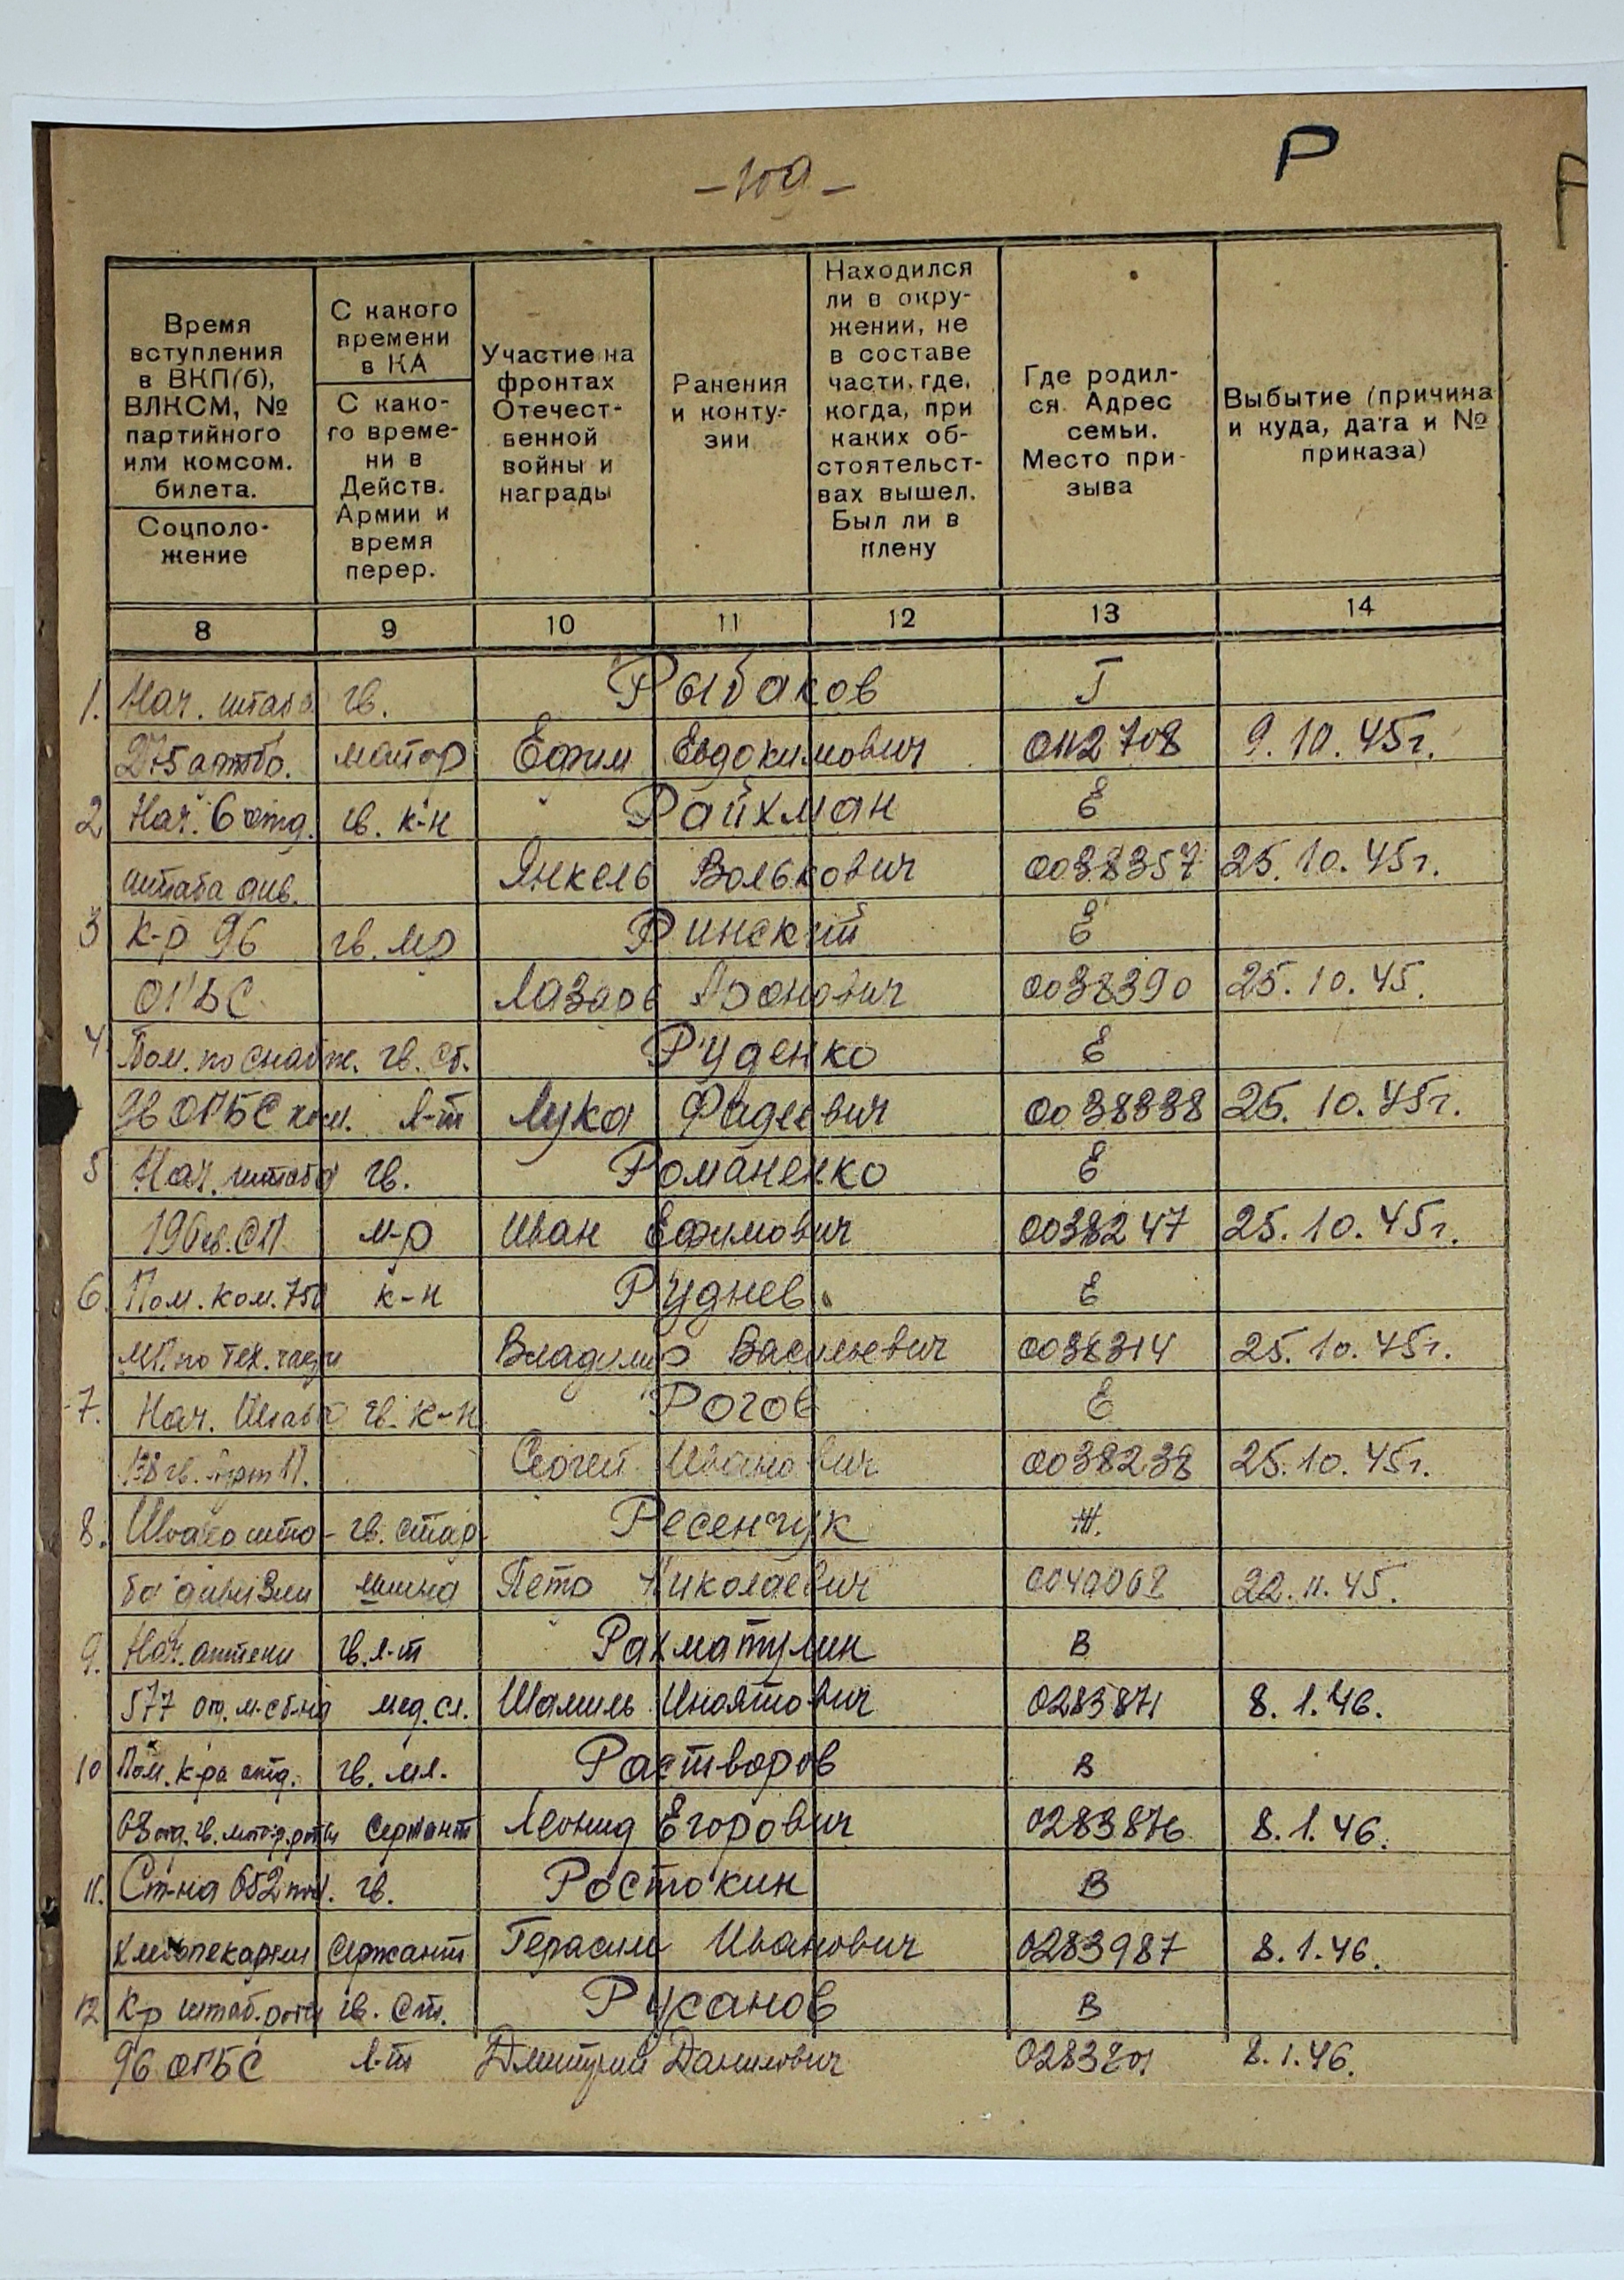 - 109 -
Р
Время
вступления
в ВКП(б),
ВЛКСМ, №
партийного
или комсом.
билета.
Соцполо-
жение
С какого
времени
в КА
С како-
го време-
ни в
Действ.
Армии и
время
перер.
Участие на
фронтах
Отечест-
венной
войны и
награды
Ранения
и конту-
зии
Находился
ли в окру-
жении, не
в составе
части, где,
когда, при
каких об-
стоятельст-
вах вышел.
Был ли в
плену
Где родил-
ся. Адрес
семьи.
Место при-
зыва
Выбытие (причина
и куда, дата и №
приказа)
8 9 10 11 12 13 14
1. Нач. штаба гв. Рыбаков Г
майор Ефим Евдокимович 0112708 9.10.45г.
2 Нач. 6 отд. гв. к-н Райхман Е
штаба див. Янкель Волькович 0038357 25.10.45г.
3 К-р 96 гв. м-р Ринский Е
ОГБС Лазарь Аронович 0038390 25.10.45.
4 Пом. по снабж. гв. ст. Руденко Е
96 ОГБС л-т Лука Фадеевич 0038338 25.10.45г.
5 Нач. штаба гв. Романенко Е
м-р Иван Ефимович 0038247 25.10.45г.
6. Пом. ком. 750 к-н Руднев Е
МП. по тех. части Владимир Васильевич 0038314 25.10.45г.
7. Нач. Штаба гв. к-н Рогов Е
Сергей Иванович 0038238 25.10.45г.
8. гв. стар. Ресенчук Ж.
ба дивизии шина Петр Николаевич 22.11.45.
9. Нач. аптеки гв. л-т Рахматулин В
577 отд. м-сб-на мед. сл. Шамиль Иноятович 0283871 8.1.46.
10 Пом. к-ра отд. гв. мл. Растворов В
сержант Леонид Егорович 0283876 8.1.46.
11. Ст-на 652 пол. гв. Ростокин В
хлебопекарни Сержант Герасим Иванович 0283987 8.1.46.
12 К-р штаб. роты гв. ст. Русанов В
96 ОГБС л-т Дмитрий Данилович 8.1.46.